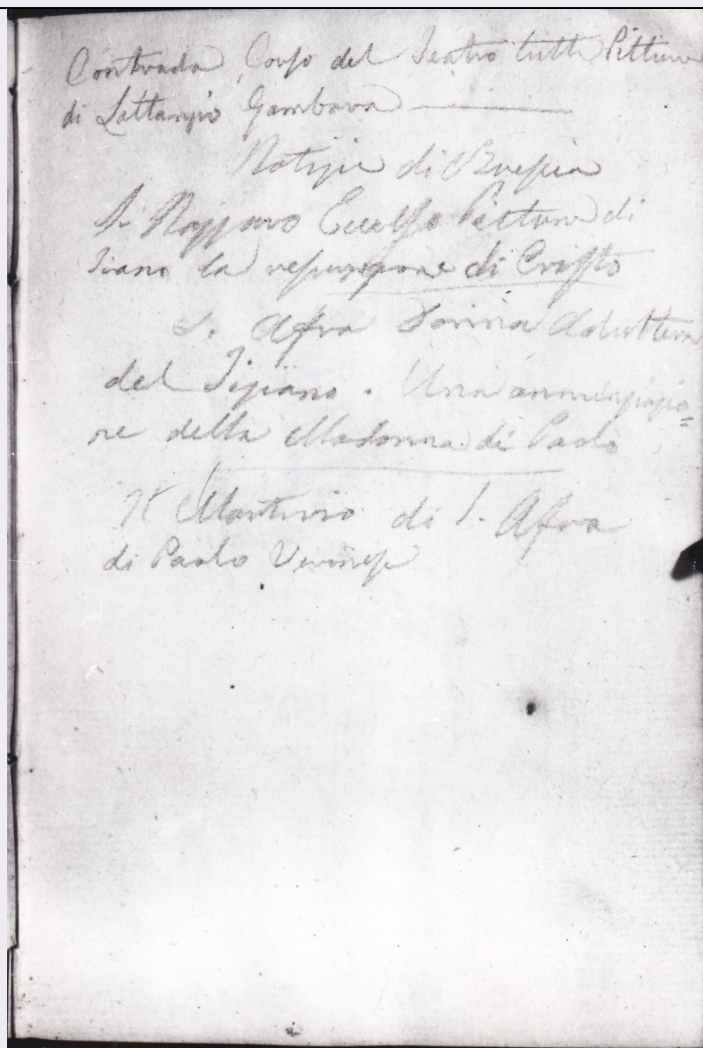 Contrada Corso del Teatro tutte Pitture
di Lattanzio Gambara
Notizie di Brescia
S. Nazzaro Pitture di
Ziano la resurezione di Cristo
S. Afra Donna Adultera
del Tiziano. Una annunziazio=
ne della Madonna di Paolo
Il Martirio di S. Afra
di Paolo Veronese